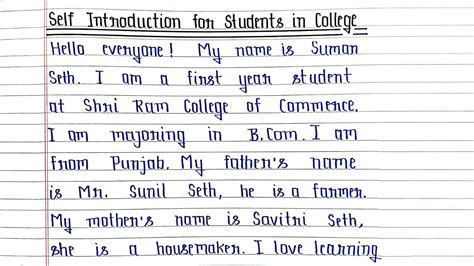 Self Introduction for Students in College
Hello everyone! My name is Suman
Seth. I am a first year student
at Shri Ram College of Commerce.
I am majoring in B.Com. I am
from Punjab. My father's name
is Mr. Sunil Seth, he is a farmer.
My mother's name is Savitri Seth,
she is a housemaker. I love learning